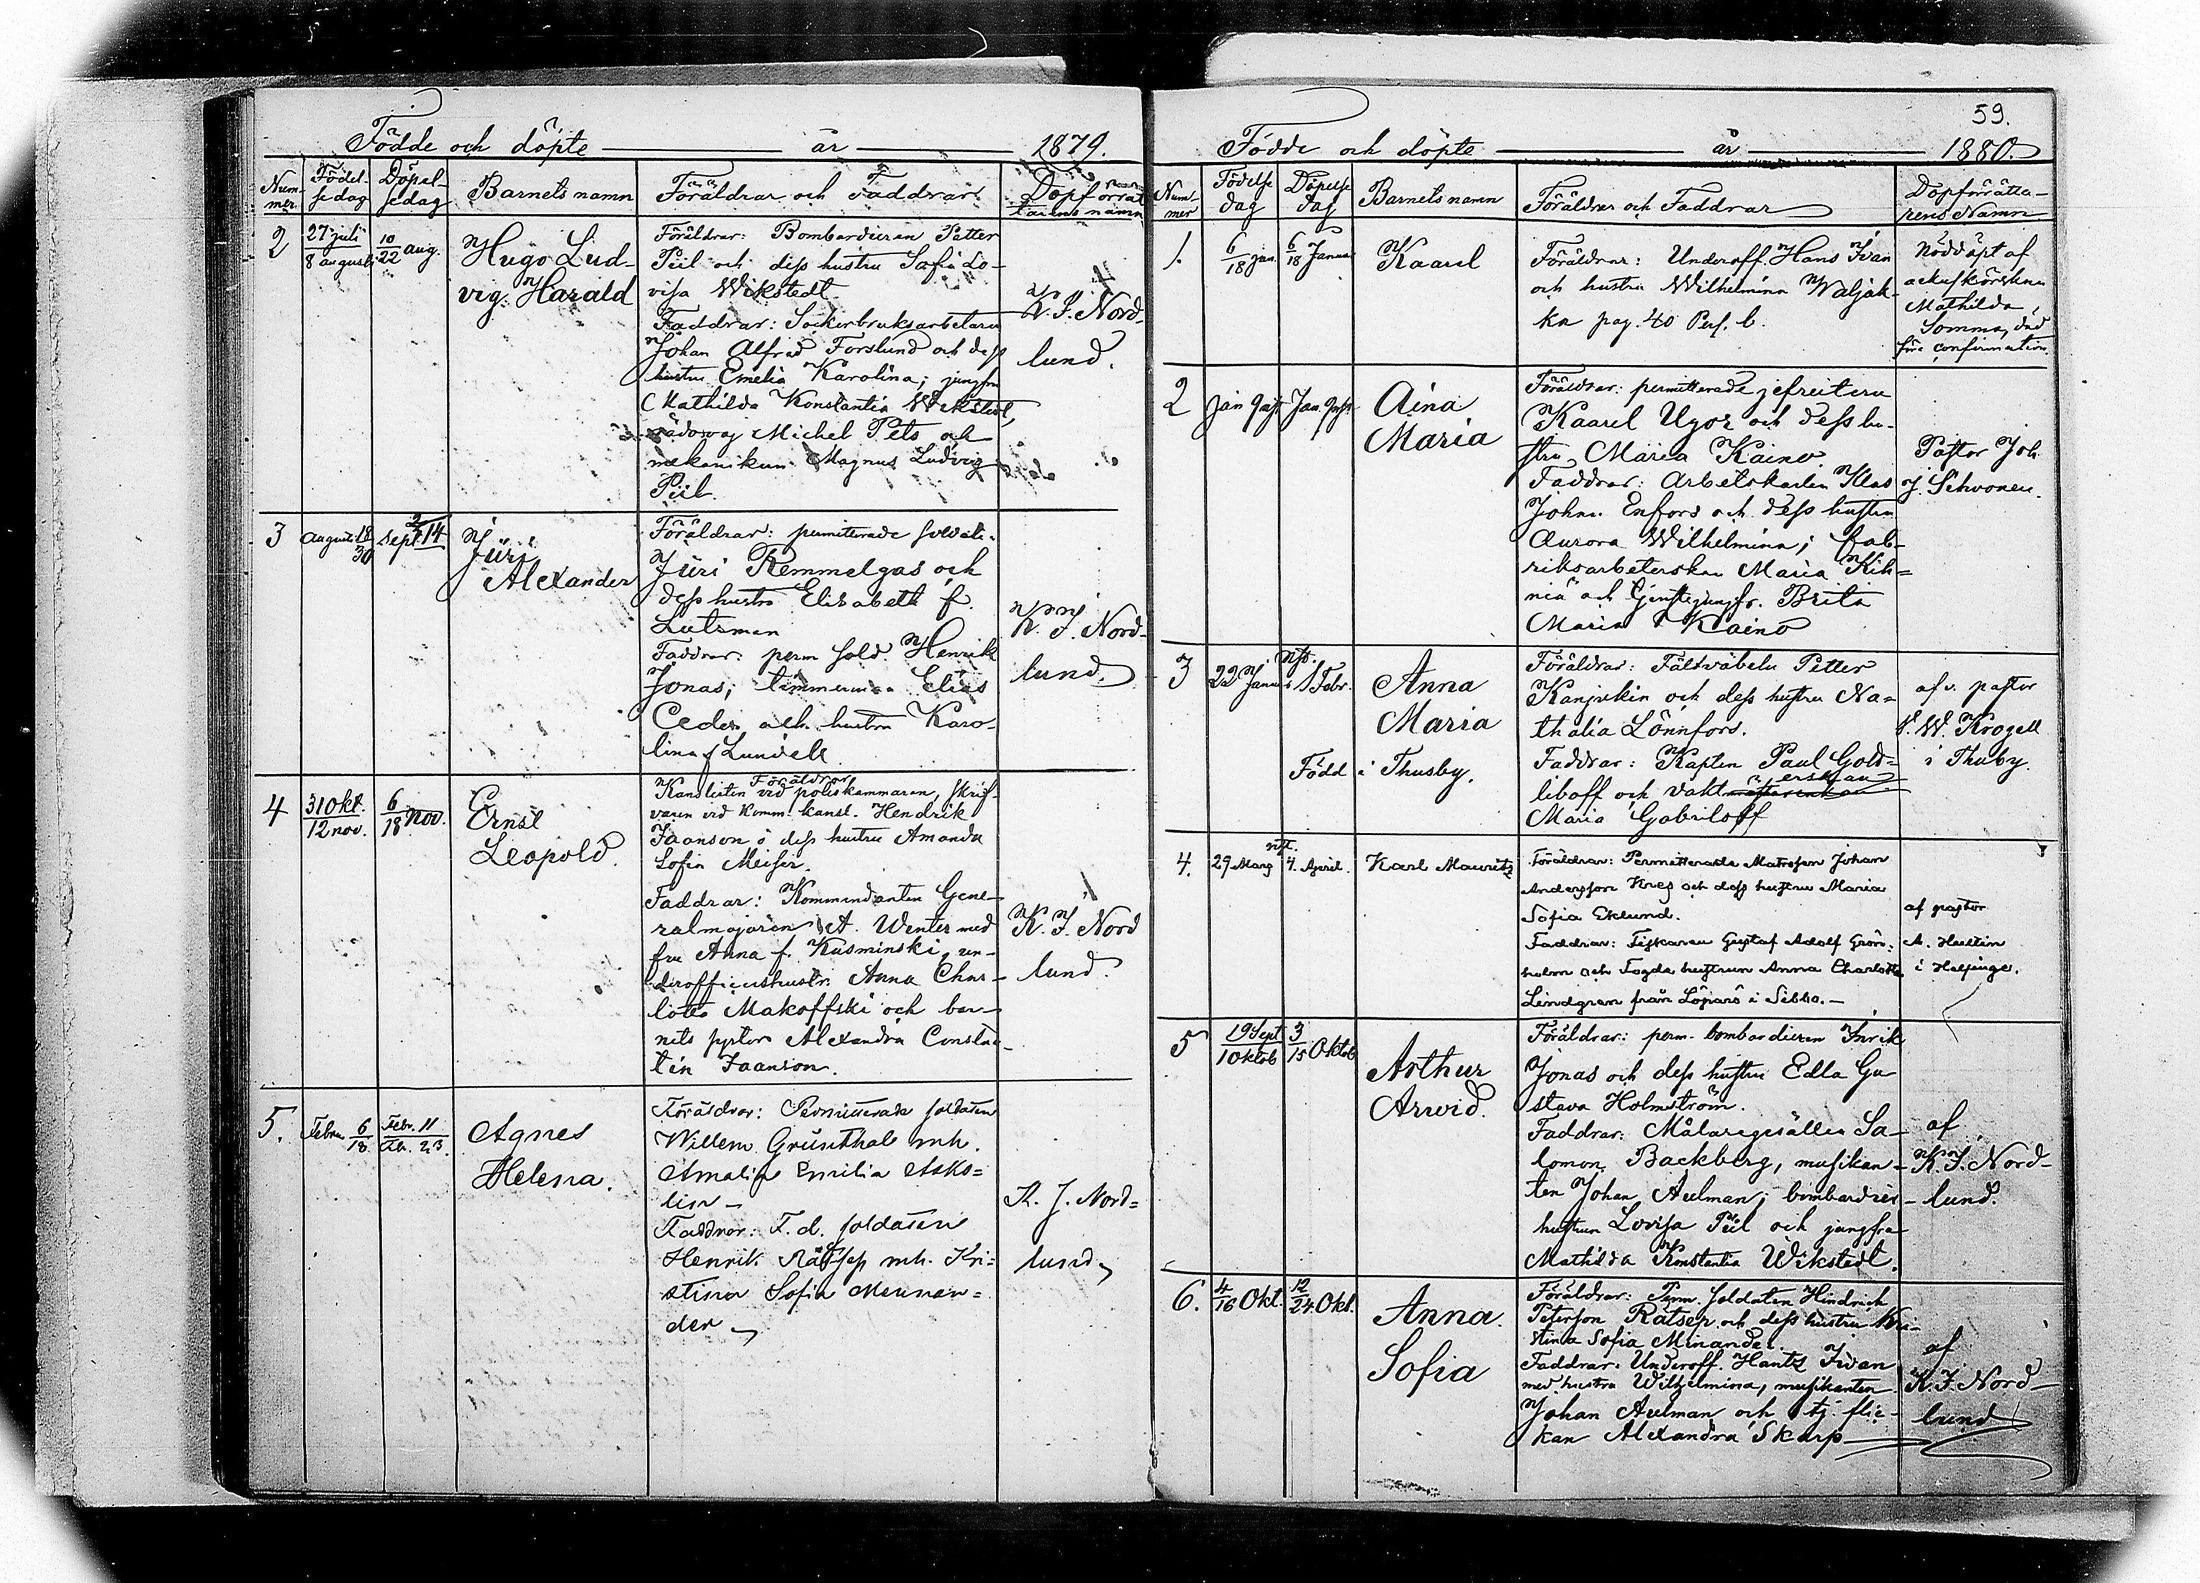 Födde och döpte år 1879.
Num-mer Födel-sedag Döpel-sedag Barnets namn Föräldrar och Faddrar Döpförrät-tarens namn
2 27 juli/8 augusti 10/22 aug. Hugo Lud-
vig Harald
Föräldrar: Bombardieren Petter
Piil och dess hustru Sofia Lo-
visa Wikstedt
Faddrar: Sockerbruksarbetaren
Johan Alfred Forslund och dess
hustru Emelia Karolina; jungfru
Mathilda Konstantia Wikstedt,
Michel Pets och
mekanikun Magnus Ludvig
Piil.
K. J. Nord-
lund.
3 Augusti 18/30 Sept. 2/14 Jüri
Alexander
Föräldrar: permitterade soldat.
Jüri Remmelgas och
dess hustru Elisabeth f.
Lutsman
Faddrar: perm sold. Henrik
Jonas, timmerman Elias
Ceder och hustru Karo-
lina f Lundell
K. J. Nord-
lund.
4 31 Okt./12 nov. 6/18 nov. Ernst
Leopold.
Föräldrar
Kanslisten vid poliskammaren, skrif-
varen vid Komm. kansl. Hendrik
Jaanson o dess hustru Amanda
Sofia Meiser.
Faddrar: Kommendanten Gene-
ralmajoren A. Winter med
fru Anna f. Kusminski, un-
derofficershustr. Anna Char-
lotta Makoffski och bar-
nets syster Alexandra Constan-
tin Jaanson.
K. J. Nord
lund.
5. Febru 6/18 Febr. 11/Feb. 23 Agnes
Helena.
Föräldrar: Permitterade soldaten
Willem Grünthal mh.
Amalia Emilia Asko=
lin
Faddrar: F. d. soldaten
Henrik Rätsep mh. Kri=
stina Sofia Menan=
der
K. J. Nord=
lund
59.
Födde och döpte år 1880.
Num-mer Födelse dag Döpelse dag Barnets namn Föräldrar och Faddrar Döpförrätta-rens Namn
1. 6/18 jan. 6/18 Januari Kaarel
Föräldrar: Underoff. Hans Ivan
och hustru Wilhelmina Waljak-
ka pag. 40 Pers. b.
Nöddöpt af
ackuschörskan
Mathilda
Somma, död
före confirmation.
2 Jan Jan. Aina
Maria
Föräldrar: permitterade jefreitern
Kaarel Ugor och dess hu-
stru Maria Kaino
Faddrar: Arbetskarlen Klas
Johan Enfors och dess hustru
Aurora Wilhelmina; fab-
riksarbeterskan Maria Kih-
niä och Brita
Maria Kaino
Pastor Joh.
J. Sihvonen.
3 22 Janu 1 Febr. nst. Anna
Maria
Född i Thusby.
Föräldrar: Fältväbeln Petter
Kanjukin och dess hustru Na-
thalia Lönnfors.
Faddrar: Kapten Paul Gold-
liboff och vakt erskan
Maria Gabriloff
af v. pastor
F. W. Krogell
i Thusby.
4. 29 Mars 4. April. nst. Karl Mauritz
Föräldrar: Permitterade Matrosen Johan
Andersson Kres och dess hustru Maria
Sofia Eklund.
Faddrar: Fiskaren Gustaf Adolf Grön-
holm och Fogde hustrun Anna Charlotta
Lindgren från Löparö i Sibbo.
af pastor
A. Hallin
i Helsinge.
5 19 Sept/1 Oktob 3/15 Oktob Arthur
Arvid.
Föräldrar: perm. bombardieren Inrik
Jonas och dess hustru Edla Gu
stava Holmström.
Faddrar: Målaregesällen Sa-
lomon Backberg, musikan-
ten Johan Aulman, bombardier-
hustrun Lovisa Piil och jungfru
Mathilda Konstantia Wikstedt.
af
K. J. Nord-
lund.
6. 4/16 Okt. 12/24 Okt. Anna
Sofia
Föräldrar: Perm. Soldaten Hindrich
Peterson Rätsep och dess hustru Kri-
stina Sofia Minander.
Faddrar: Underoff. Hants Ivan
med hustru Wilhelmina, musikanten
Johan Aulman och tj. flic-
kan Alexandra Skarp
af
K. J. Nord-
lund